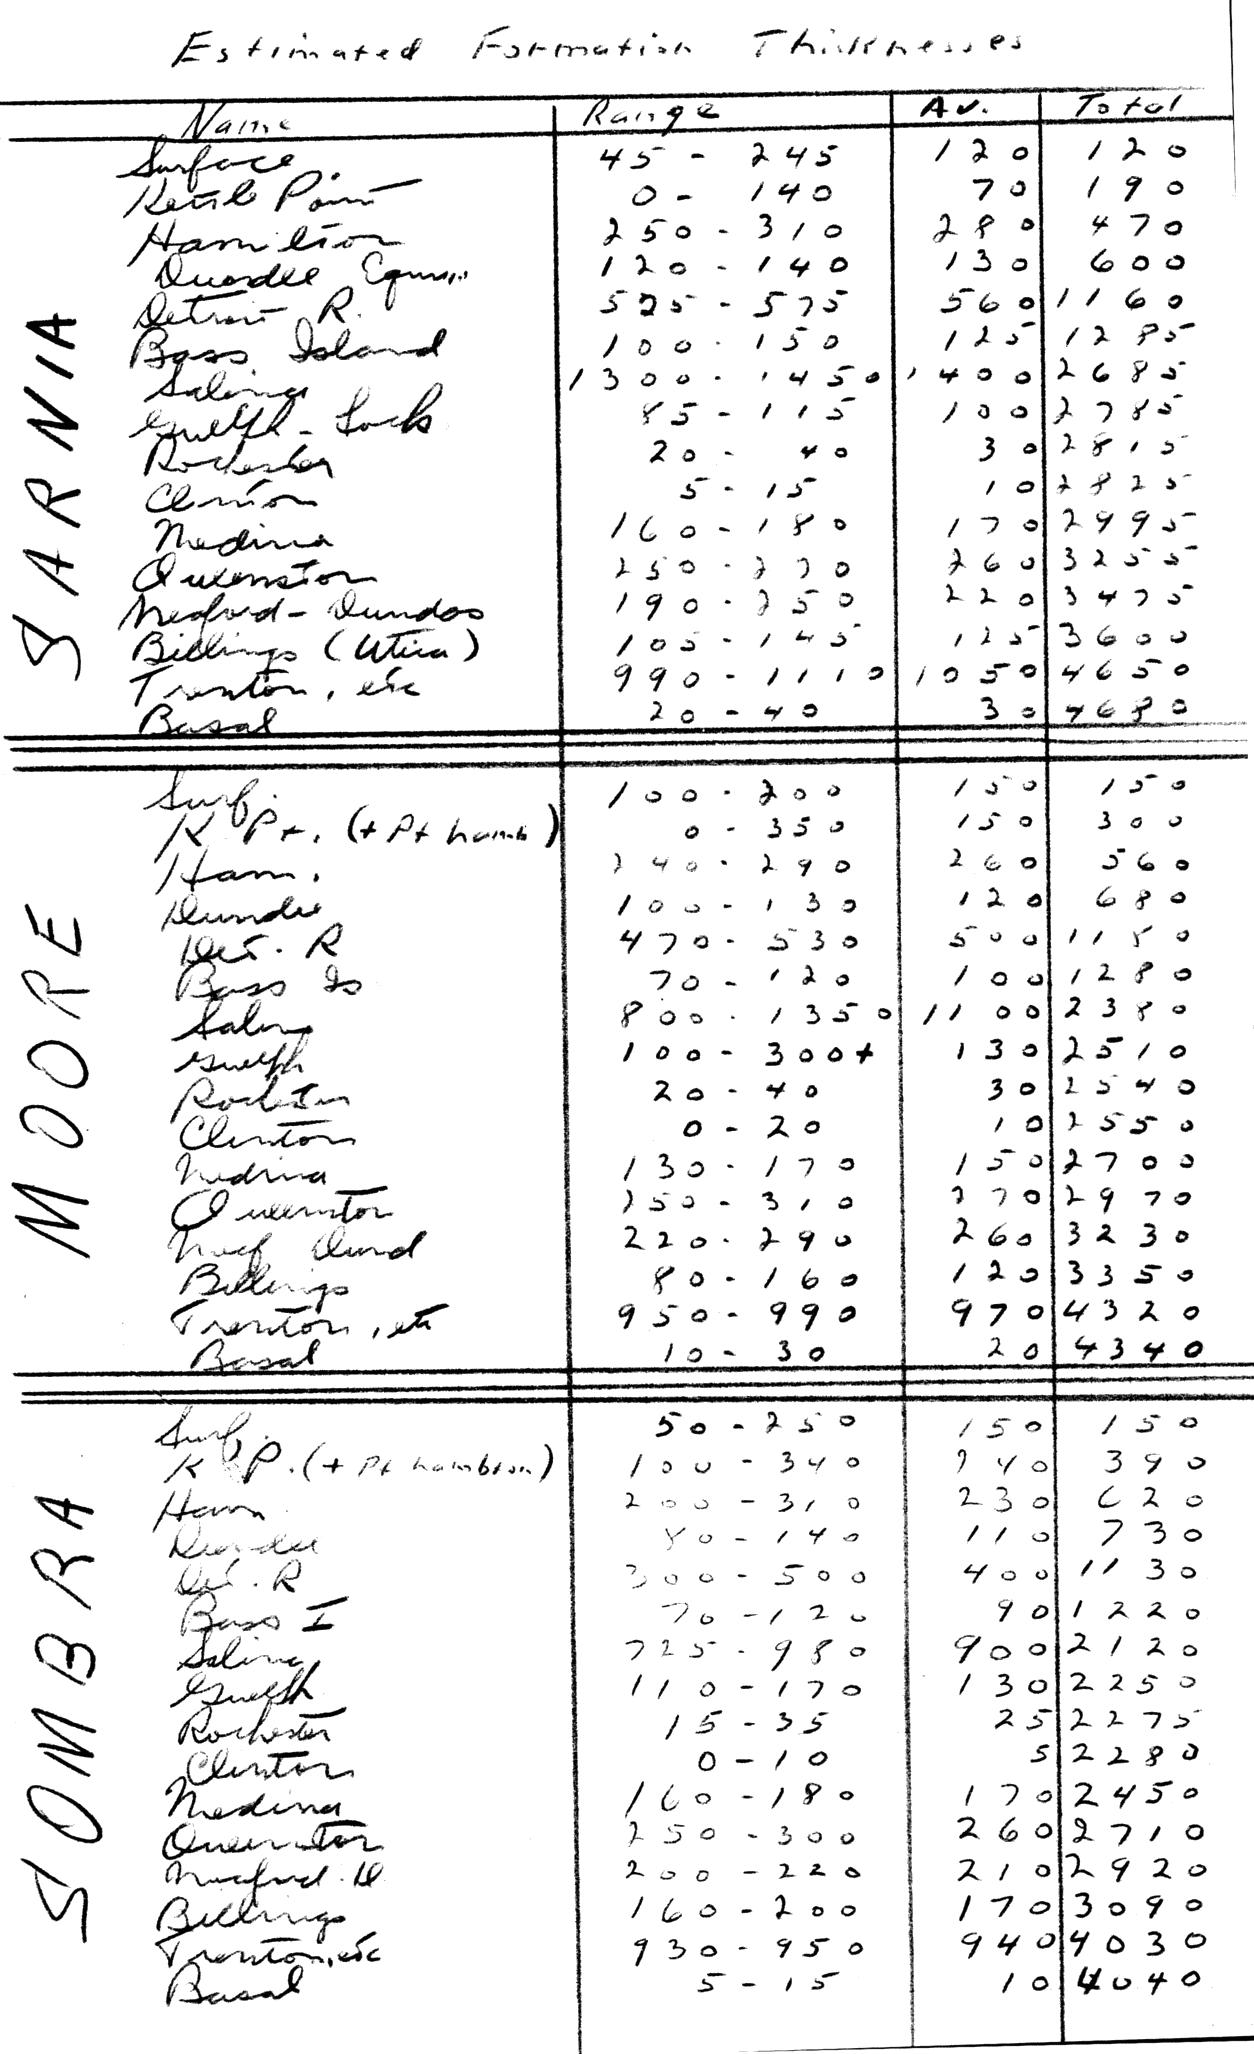 Estimated Formation Thicknesses
Name Range Av. Total
SARNIA
Surface 45 - 245 120 120
Kettle Point 0 - 140 70 190
Hamilton 250 - 310 280 470
Dundee 120 - 140 130 600
Detroit R. 525 - 575 560 1160
Bass Island 100 - 150 125 1285
Salina 1300 - 1450 1400 2685
Guelph - Lock 85 - 115 100 2785
Rochester 20 - 40 30 2815
Clinton 5 - 15 10 2825
Medina 160 - 180 170 2995
Queenston 250 - 270 260 3255
Meaford - Dundas 190 - 250 220 3475
Billings (Utica) 105 - 145 125 3600
Trenton, etc 990 - 1110 1050 4650
Basal 20 - 40 30 4680
MOORE
Surf. 100 - 200 150 150
K Pt. (+ Pt hamb) 0 - 350 150 300
Ham. 240 - 290 260 560
Dundee 100 - 130 120 680
Det. R 470 - 530 500 1180
Bass Is 70 - 120 100 1280
Salina 800 - 1350 1100 2380
Guelph 100 - 300+ 130 2510
Rochester 20 - 40 30 2540
Clinton 0 - 20 10 2550
Medina 130 - 170 150 2700
Queenston 250 - 310 270 2970
Meaf Dund 220 - 290 260 3230
Billings 80 - 160 120 3350
Trenton, etc 950 - 990 970 4320
Basal 10 - 30 20 4340
SOMBRA
Surf. 50 - 250 150 150
K P. (+ Pt hambton) 100 - 340 240 390
Ham 200 - 310 230 620
Dundee 80 - 140 110 730
Det. R 300 - 500 400 1130
Bass I 70 - 120 90 1220
Salina 725 - 980 900 2120
Guelph 110 - 170 130 2250
Rochester 15 - 35 25 2275
Clinton 0 - 10 5 2280
Medina 160 - 180 170 2450
Queenston 250 - 300 260 2710
Meaford D 200 - 220 210 2920
Billings 160 - 200 170 3090
Trenton, etc 930 - 950 940 4030
Basal 5 - 15 10 4040